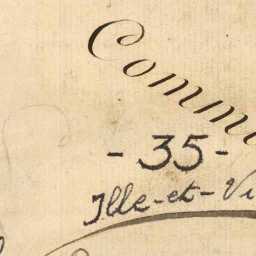 Commu
- 35 -
Ille-et-Vi